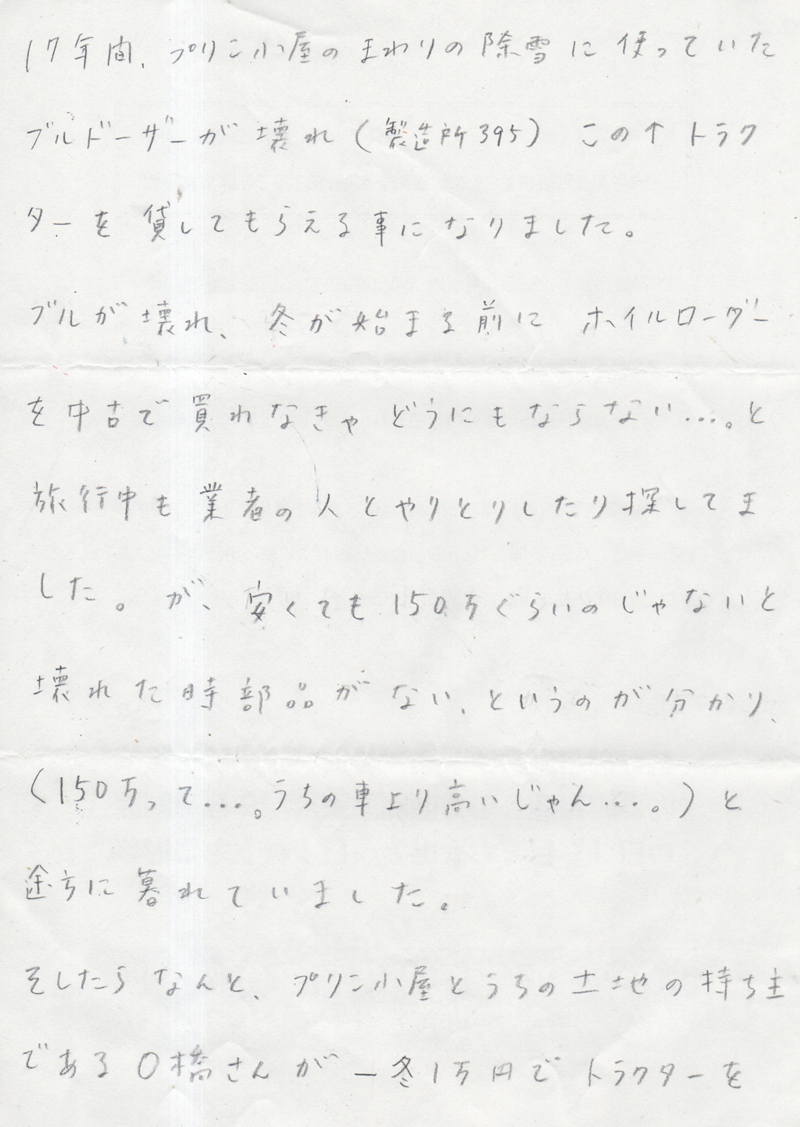 17年間、プリン小屋のまわりの除雪に使っていた
ブルドーザーが壊れ(製造所395) この↑トラク
ターを貸してもらえる事になりました。
ブルが壊れ、冬が始まる前に ホイルローダー
を中古で買れなきゃ どうにもならない…。と
旅行中も業者の人とやりとりしたり探してま
した。が、安くても150万ぐらいのじゃないと
壊れた時部品がない、というのが分かり、
(150万って…。うちの車より高いじゃん…。)と
途方に暮れていました。
そしたらなんと、プリン小屋とうちの土地の持ち主
である〇橋さんが一冬1万円でトラクターを